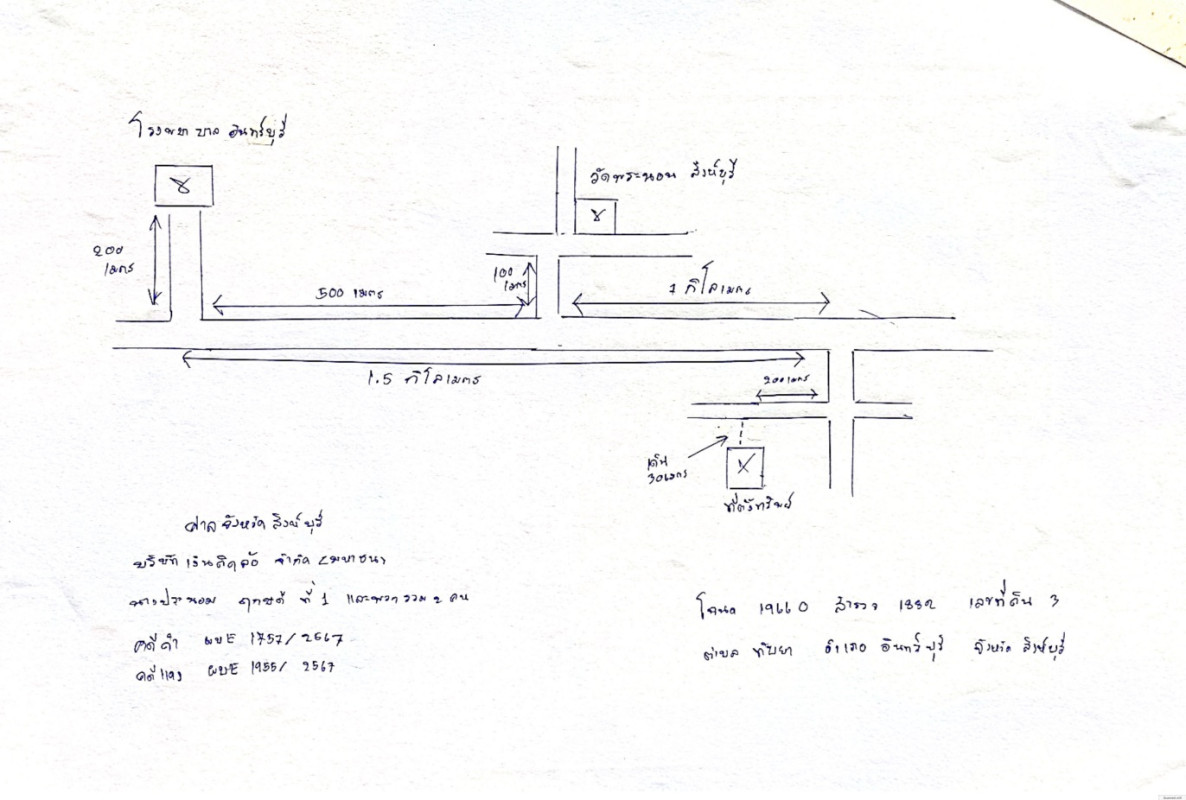 โรงพยาบาล อินทร์บุรี
วัดพระนอน สิงห์บุรี
200
เมตร
100
เมตร
500 เมตร
1 กิโลเมตร
1.5 กิโลเมตร
200 เมตร
เดิน
30 เมตร
ที่ตั้งทรัพย์
ศาลจังหวัดสิงห์บุรี
บริษัท เงินติดล้อ จำกัด (มหาชน)
นางประนอม ที่ 1 และพวกรวม 2 คน
คดีดำ ผบE 1757/2567
คดีแดง ผบE 1955/2567
โฉนด 19660 สำรวจ 1882 เลขที่ดิน 3
ตำบล ทับยา อำเภอ อินทร์บุรี จังหวัด สิงห์บุรี